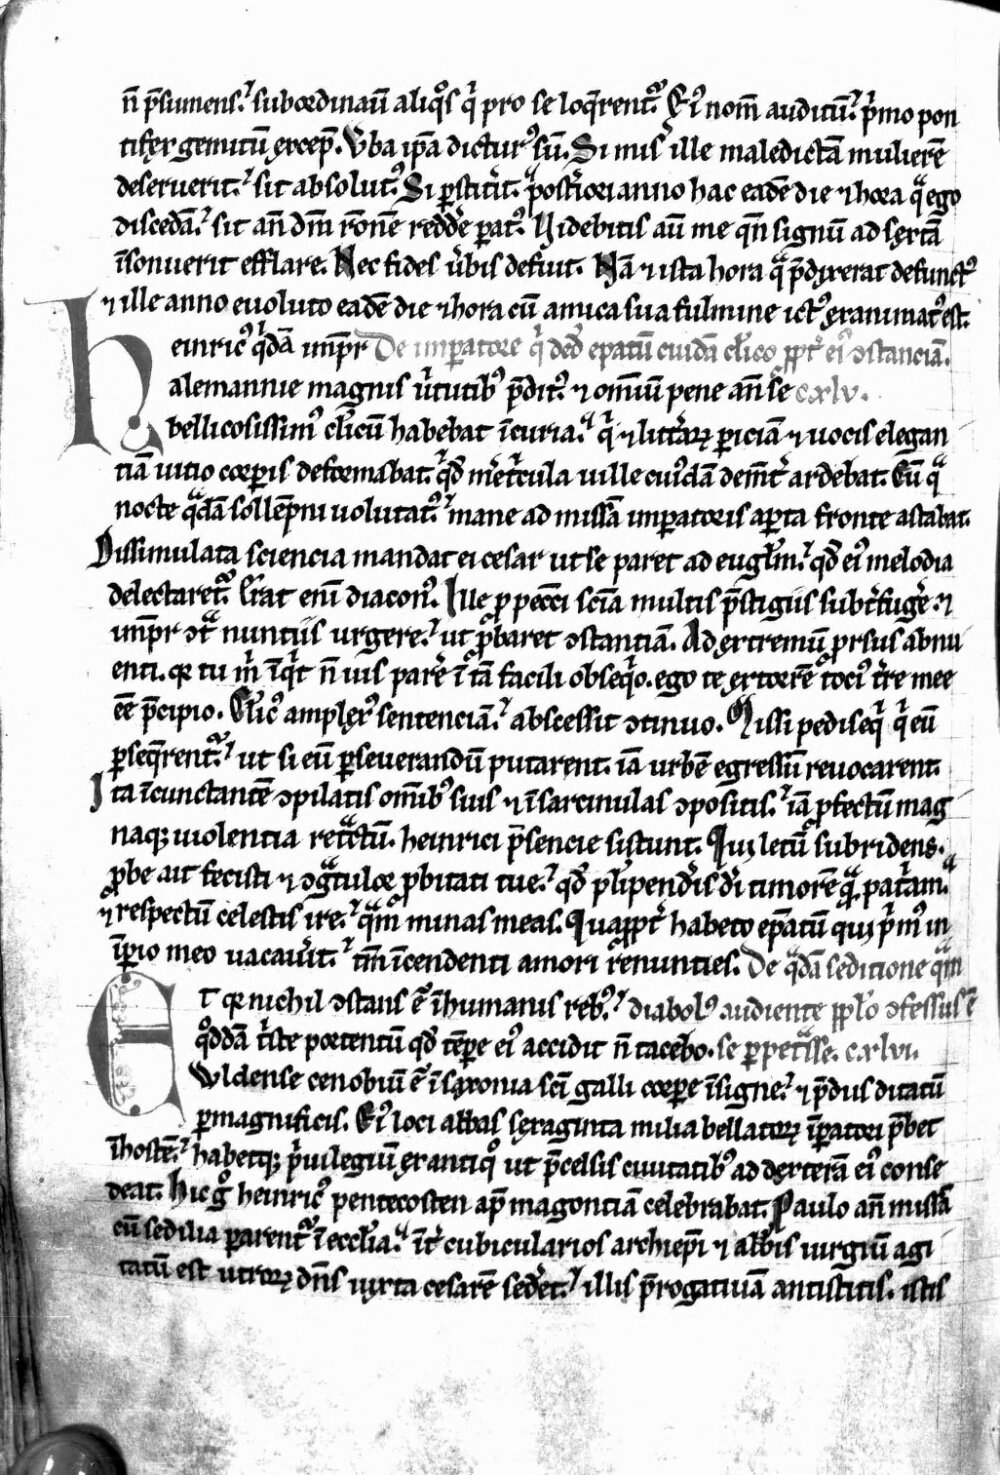 n̄ p̄sumens. suboꝛdinauit aliq̊s q̇ pro se loq̄rent᷑. Ei᷒ nom̄ auditū. ṗmo pon
tifex gemitū excep̄. Vba ip̄a dictur᷒ sū. Si mis̓ ille maledictā mulierē
deseruerit. sit absolut᷒. Si ꝑstit̓it. postꝰioꝛi anno hac eadē die ⁊ hoꝛa qᷓ ego
discedā. sit an̄ dm̄ rōnē redde̓ parat᷒. Uidebitis aū me qn̄ signū ad sextā
īsonuerit efflare. Nec fides u̓bis defuit. Nā ⁊ ista hora qᷓ p̄dixerat defunct᷒
⁊ ille anno euoluto eadē die ⁊ hora cū amica sua fulmine ict᷒ exanimat᷒ est.
Heinric᷒ q̇dā imp̄r De imꝑatore q̇ ded̓ epatū cuidā cl̓ico ꝓpt̓ ei᷒ ꝯstanciā.
alemannie magnis u̓tutib᷒ p̄dit᷒. ⁊ om̄iū pene an̄ se c.xlv.
bellicosissim᷒ cl̓icū habebat ī curia. q̇ ⁊ litt̓aꝝ ꝑiciā ⁊ uocis elegan
tiā uitio coꝛꝑis defoꝛmabat. q̇d m̓et̓cula uille cui᷒dā dem̄t̓ ardebat. Cū qᷓ
nocte qᷓdā sollēpni uolutat᷒. mane ad missā imꝑatoꝛis aꝑta fronte astabat.
Dissimulata sciencia mandat ei cesar ut se paret ad eugl̓m. q̇d ei᷒ melodia
delectaret᷑. Erat eni diacon᷒. Ille ꝓ pecc̄i sciā multis p̄stigiis subt̓fuge̓. ⁊
imp̄r ꝯtᷓ nuntiis urgere. ut ꝓbaret ꝯstantiā. Ad extremū pꝛsus abnu
enti. qꝛ tu m̓ īq̇t n̄ uis pare̓ ī tā facili obseq̇o. ego te extoꝛrē toci᷒ t̓re mee
eē p̄cipio. Cl̓ic᷒ amplex᷒ sentenciā. abscessit ꝯtinuo. Missi pediseq̇ q̇ eū
ꝑseq̄rent᷑. ut si eū ꝑseuerandū putarent. iā urbē egressū reuocarent.
Ita īcunctantē ꝯpilatis om̄ib᷒ suis ⁊ ī sarcinulas ꝯpositis. iā ꝓfectū mag
naq; uiolentia ret̓ctū. heinrici p̄sencie sistunt. Qui letū subridens.
ꝓbe ait fecisti ⁊ ꝯgᷓtuloꝛ ꝓbitati tue. q̇d pl̓ipend̓is d̓i timorē qᷓ patᷓam.
⁊ respectū celestis ire. qᷓm minas meas. Quaꝓpt̓ habeto ep̄atū qui p̓m᷒ in
īꝑio meo uacau̓it. tm̄ īcendenti amori renunties. De qᷓdā seditione qᷓm
Et qꝛ nichil ꝯstans ē ī humanis reb᷒. diabol᷒ audiente ppl̓o ꝯfessus ē
q̊ddā t̓ste poꝛtentū q̇d tēpe ei᷒ accidit n̄ tacebo. se ꝑpetᷓsse. c.xlvi.
Wldense cenobiū ē ī saxonia sc̄i galli coꝛꝑe īsigne. ⁊ p̄diis ditatū
ꝑmagnificis. Ei᷒ loci abbas sexaginta milia bellatoꝝ īꝑatori p̄bet
ī hostē. habetq; p̓uilegiū ex antiq̊ ut p̄celsis ciuitatib᷒ ad dexterā ei᷒ conse
deat. Hic gͦ heinric᷒ pentecosten ap̄ magontiā celebrabat. Paulo an̄ missā
cū sedilia parent᷑ ī eccl̓ia. īt̓ cubicularios archiep̄i ⁊ abb̓is iurgiū agi
tatū est utroꝝ dn̄s iuxta cesarē sede̓t. illis p̄rogatiuā antistitis. istis